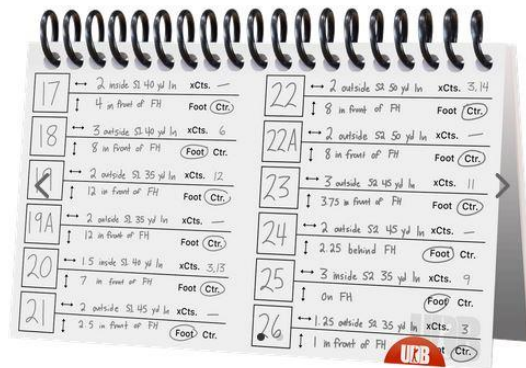 17
↔ 2 inside S1 40 yd ln xCts. —
↕ 4 in front of FH Foot Ctr.
18
↔ 3 outside S1 40 yd ln xCts. 6
↕ 8 in front of FH Foot Ctr.
↔ 2 outside S1 35 yd ln xCts. 12
↕ 12 in front of FH Foot Ctr.
19A
↔ 2 outside S1 35 yd ln xCts. —
↕ 12 in front of FH Foot Ctr.
20
↔ 1.5 inside S1 40 yd ln xCts. 3,13
↕ 7 in front of FH Foot Ctr.
21
↔ 2 outside S1 45 yd ln xCts. —
↕ 2.5 in front of FH Foot Ctr.
22
↔ 2 outside S2 50 yd ln xCts. 3,14
↕ 8 in front of FH Foot Ctr.
22A
↔ 2 outside S2 50 yd ln xCts. —
↕ 8 in front of FH Foot Ctr.
23
↔ 3 outside S2 45 yd ln xCts. 11
↕ 3.75 in front of FH Foot Ctr.
24
↔ 2 outside S2 45 yd ln xCts. —
↕ 2.25 behind FH Foot Ctr.
25
↔ 3 inside S2 35 yd ln xCts. 9
↕ On FH Foot Ctr.
26
↔ 1.25 outside S2 35 yd ln xCts. 3
↕ 1 in front of FH Ctr.